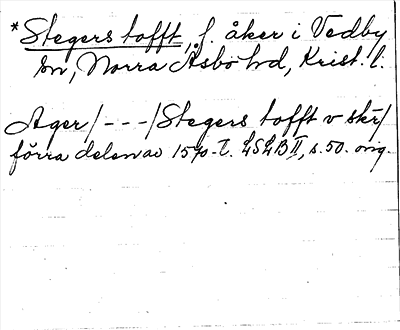 *Stegers tofft, f. åker i Vedby
sn, Norra Åsbo hd, Krist. l.
Ager/---/Stegers tofft v skr/
förra delen av 1570-t. LSLB II, s. 50. orig.